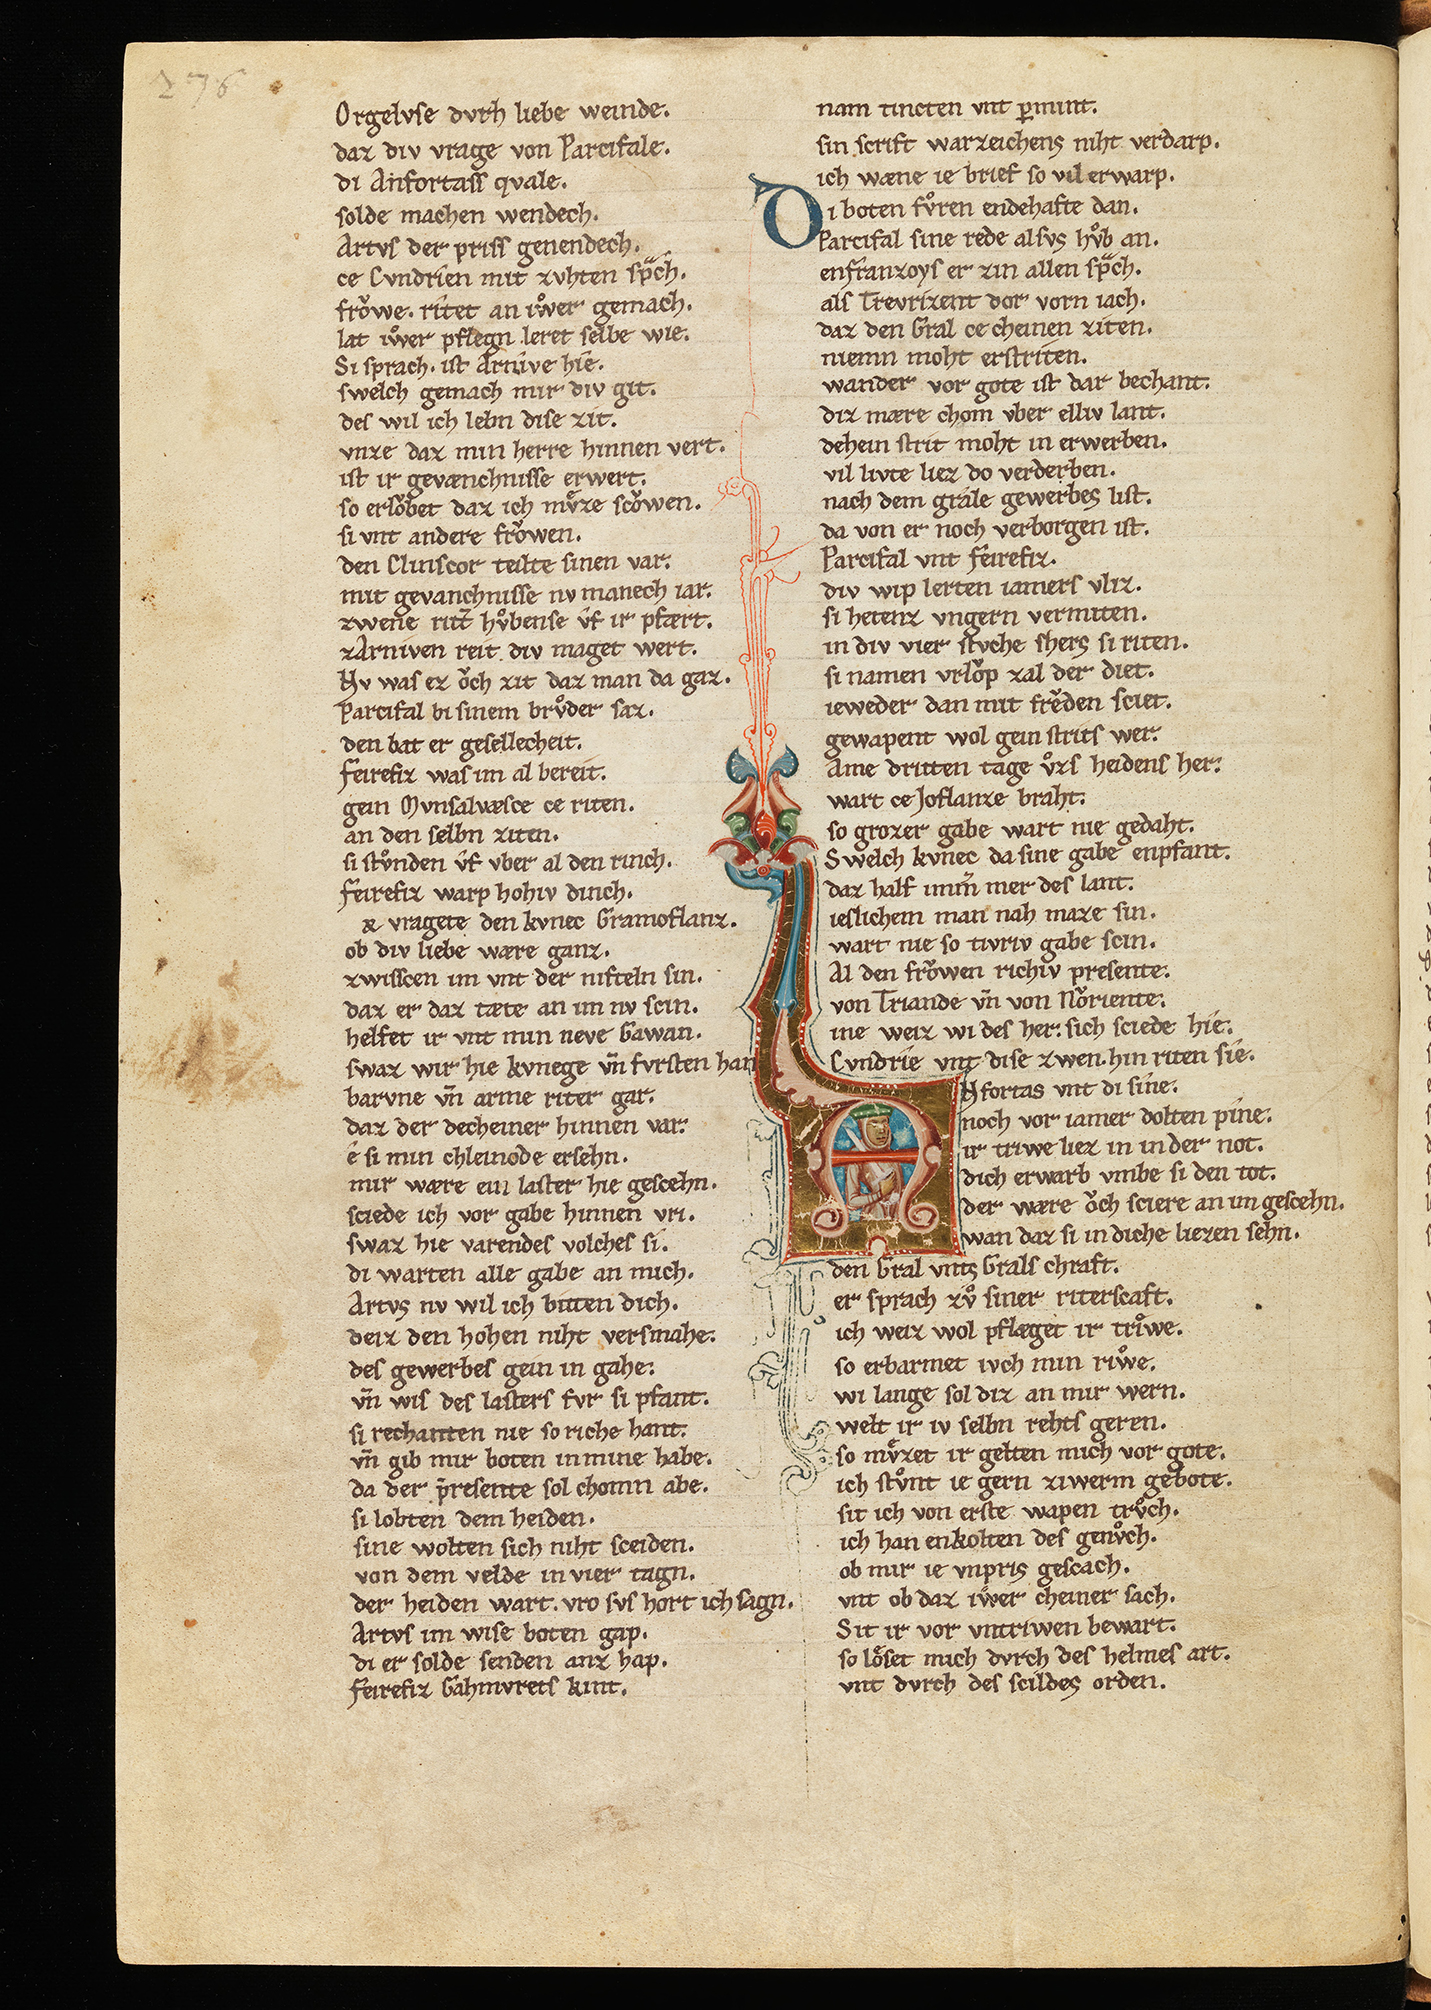 276
Orgelvse dvrh liebe weinde.
daz div vrage von Parcifale.
di Anfortass qvale.
solde machen wendech.
Artvs der priss genendech.
ce Cvndrien mit zvhten sp̃ch.
frǒwe. ritet an iẘer gemach.
lat iẘer pflegn leret selbe wie.
Si sprach. ist Arnive hie.
swelch gemach mir div git.
des wil ich lebn dise zit.
vnze daz min herre hinnen vert.
ist ir gevænchnisse erwert.
so erlǒbet daz ich mvͤze scǒwen.
si vnt andere frǒwen.
den Clinscor teilte sinen var.
mit gevanchnisse nv manech iar.
zwene ritt̃ hv̊bense v̂f ir pfært.
zArniven reit div maget wert.
Nv was ez ǒch zit daz man da gaz.
Parcifal bi sinem brv̊der saz.
den bat er gesellecheit.
Feirefiz was im al bereit.
gein Mvnsalvæsce ce riten.
an den selbn ziten.
si stv̊nden v̂f vber al den rinch.
Feirefiz warp hohiv dinch.
& vragete den kvnec Gramoflanz.
ob div liebe wære ganz.
zwisscen im vnt der nifteln sin.
daz er daz tæte an im nv scin.
helfet ir vnt min neve Gawan.
swaz wir hie kvnege vñ fvrsten han
barvne vñ arme riter gar.
daz der decheiner hinnen var.
ê si min chleinode ersehn.
mir wære ein laster hie gescehn.
sciede ich vor gabe hinnen vri.
swaz hie varendes volches si.
di warten alle gabe an mich.
Artvs nv wil ich bitten dich.
deiz den hohen niht versmahe.
des gewerbes gein in gahe.
vñ wis des lasters fvr si pfant.
si rechanten nie so riche hant.
vñ gib mir boten in mine habe.
da der p̃resente sol chomn abe.
si lobten dem heiden.
sine wolten sich niht sceiden.
von dem velde in vier tagn.
der heiden wart. vro svs hort ich sagn.
Artvs im wise boten gap.
di er solde senden anz hap.
Feirefiz Gahmvrets kint.
nam tincten vnt p̱mint.
sin scrift warzeichens niht verdarp.
ich wæne ie brief so vil erwarp.
Di boten fv̊ren endehafte dan.
Parcifal sine rede alsvs hv̊b an.
enfranzoys er zin allen sp̃ch.
als Trevrizent dor vorn iach.
daz den Gral ce cheinen ziten.
niemn moht erstriten.
wander vor gote ist dar bechant.
diz mære chom vber elliv lant.
dehein strit moht in erwerben.
vil livte liez do verderben.
nach dem grâle gewerbes list.
da von er noch verborgen ist.
Parcifal vnt Feirefiz.
div wip lerten iamers vliz.
si hetenz vngern vermiten.
in div vier stvche shers si riten.
si namen vrlǒp zal der diet.
ieweder dan mit frẽden sciet.
gewapent wol gein strits wer.
Ame dritten tage v̊zs heidens her.
wart ce Joflanze braht.
so grozer gabe wart nie gedaht.
Swelch kvnec da sine gabe enpfant.
daz half imm̃ mer des lant.
ieslichem man nah maze sin.
wart nie so tivriv gabe scin.
Al den frǒwen richiv presente.
von Triande vñ von Nǒriente.
ine weiz wi des her. sich sciede hie.
Cvndrie vnt dise zwen. hin riten sie.
ANfortas vnt di sine.
noch vor iamer dolten pine.
ir triwe liez in in der not.
dich erwarb vmbe si den tot.
der wære ǒch sciere an im gescehn.
wan daz si in diche liezen sehn.
den Gral vnts Grals chraft.
er sprach zv̊ siner riterscaft.
ich weiz wol pflæget ir trẘe.
so erbarmet ivch min riẘe.
wi lange sol diz an mir wern.
welt ir iv selbn rehts geren.
so mvͤzet ir gelten mich vor gote.
ich stv̊nt ie gern ziwerm gebote.
sit ich von erste wapen trv̊ch.
ich han enkolten des genv̊ch.
ob mir ie vnpris gescach.
vnt ob daz iẘer cheiner sach.
Sit ir vor vntriwen bewart.
so lôset mich dvrch des helmes art.
vnt dvrch des scildes orden.